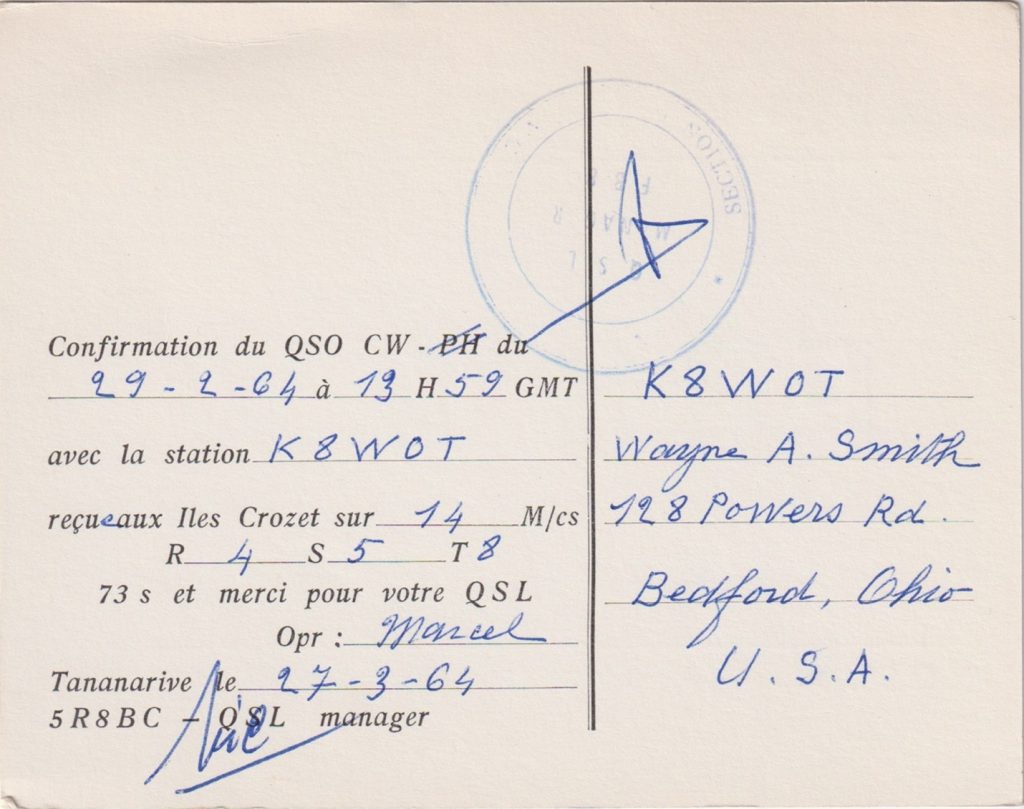 SECTION
Q S L
Confirmation du QSO CW - PH du
29-2-64 à 13 H 59 GMT
avec la station K8WOT
reçue aux Iles Crozet sur 14 M/cs
R 4 S 5 T 8
73 s et merci pour votre QSL
Opr : Marcel
Tananarive le 27-3-64
5R8BC - QSL manager
K8WOT
Wayne A. Smith
128 Powers Rd.
Bedford, Ohio
U.S.A.